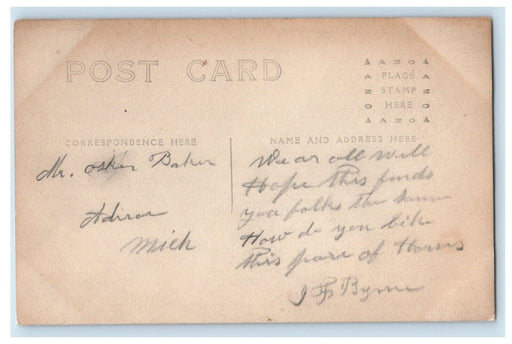 POST CARD
AZNOA
PLACE
STAMP
HERE
AZNOA
CORRESPONDENCE HERE
NAME AND ADDRESS HERE
Mr. Baker
Mich
We ar all Well
Hope this finds
you folks the same
How do you like
this pare of Horses
J F Byrne